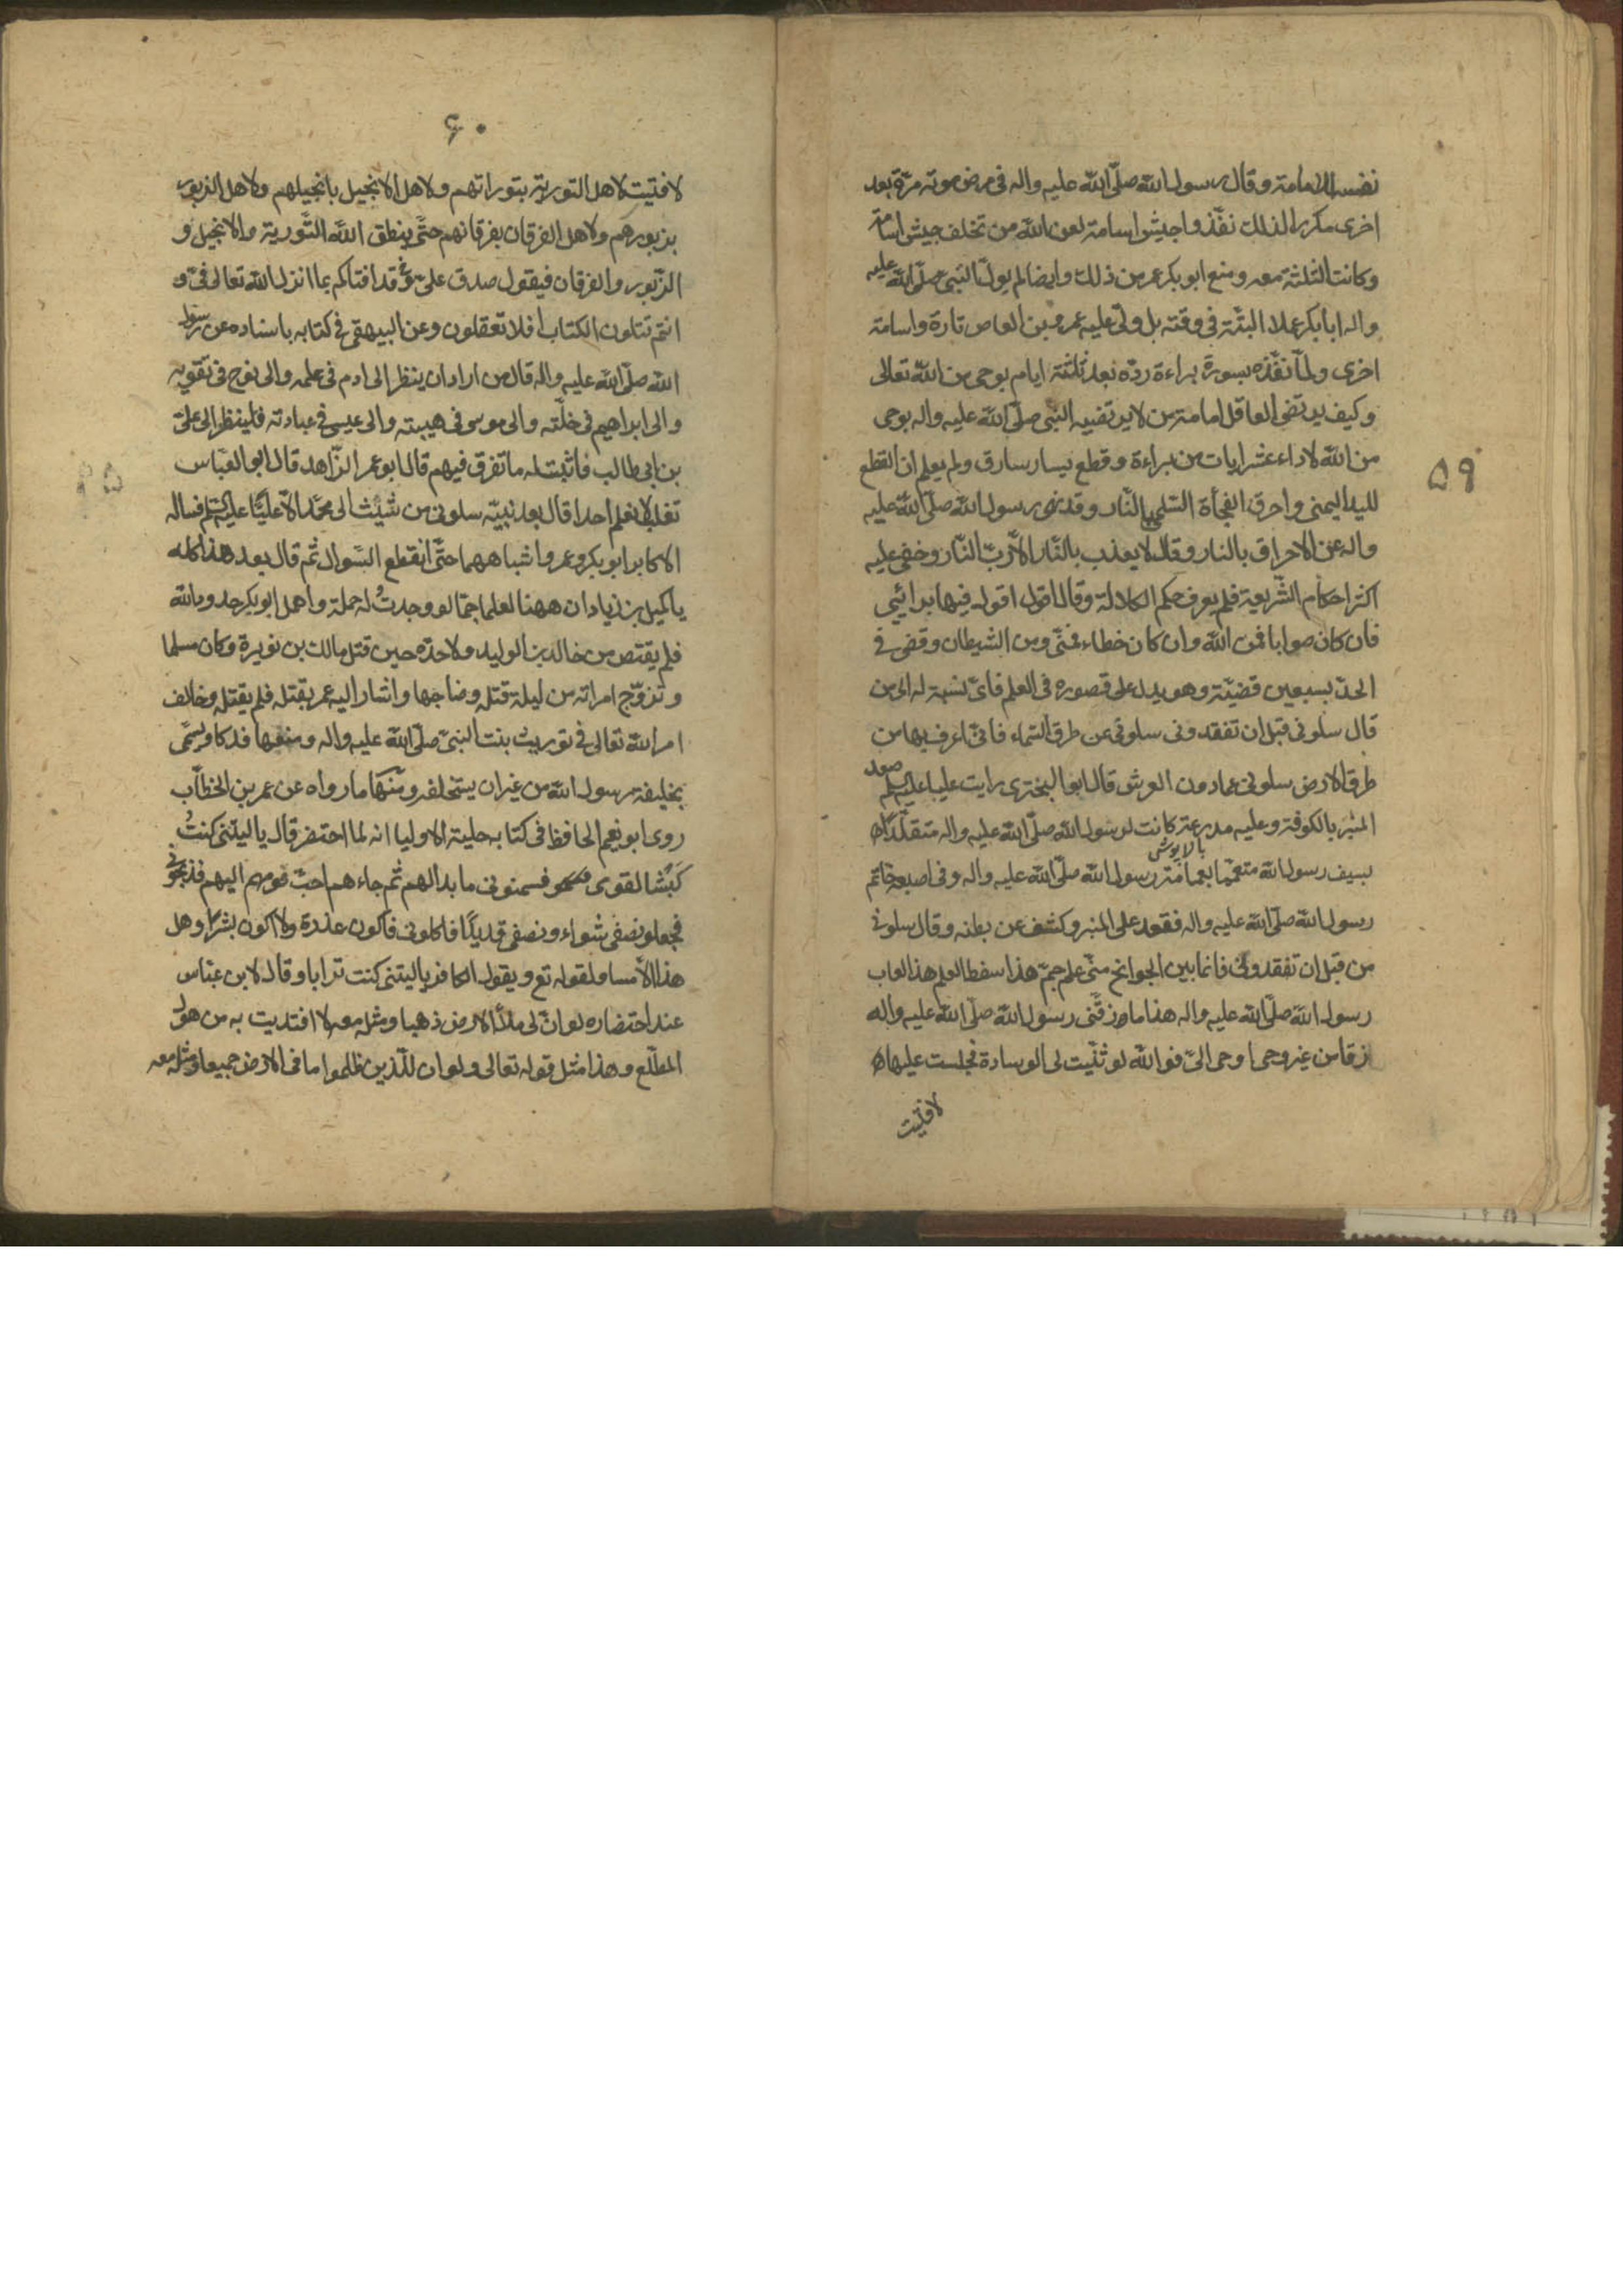 ٥٩
نفسه الامامة وقال رسول الله صلّى الله عليه واله فى مرض موته مرّة بعد
اخرى مكررا لذلك نفّذوا جيش اسامة لعن الله من تخلف جيش اسامة
وكانت الثلثة معه ومنع ابو بكر عمر من ذلك وايضا لم يولّ النبىّ صلّى الله عليه
واله ابا بكر عملا البتّة فى وقته بل ولّى عليه عمرو بن العاص تارة واسامة
اخرى ولمّا نفّذه بسورة براءة ردّه بعد ثلثة ايام بوحى من الله تعالى
وكيف يرتضى العاقل امامة من لا يرتضيه النبى صلّى الله عليه واله بوحى
من الله لاداء عشر ايات من براءة وقطع يسار سارق ولم يعلم ان القطع
لليد اليمنى واحرق الفجأة السّلمى بالنّار وقد نهى رسول الله صلّى الله عليه
واله عن الاحراق بالنار وقال لا يعذب بالنّار الّا ربّ النّار وخفى عليه
اكثر احكام الشّريعة فلم يعرف حكم الكلالة وقال اقول اقول فيها برائيى
فان كان صوابا فمن الله وان كان خطاء فمنّى ومن الشيطان وقضى فى
الحدّ بسبعين قضيّة وهو يدل على قصوره فى العلم فاىّ نسبة له الى من
قال سلونى قبل ان تفقدونى سلونى عن طرق السّماء فانىّ اعرف بها من
طرق الارض سلونى عمادون العرش قال ابو البخترى رايت عليا عليه السلم صعد
المنبر بالكوفة وعليه مدرعة كانت لرسول الله صلّى الله عليه واله متقلّدًا
بالا پوش
بسيف رسول الله متعمّما بعمامة رسول الله صلّى الله عليه واله وفى اصبعه خاتم
رسول الله صلّى الله عليه واله فقعد على المنبر وكشف عن بطنه وقال سلونى
من قبل ان تفقدونى فانما بين الجوانح منّى علم جمّ هذا سفط العلم هذا لعاب
رسول الله صلّى الله عليه واله هذا ما زقّنى رسول الله صلّى الله عليه واله
زقا من غير وحى اوحى الىّ فوالله لو ثنّيت لى الوسادة فجلست عليها
لافتيت
٦٠
لافتيت لاهل التورية بتوراتهم ولاهل الانجيل بانجيلهم ولاهل الزبور
بزبورهم ولاهل الفرقان بفرقانهم حتّى ينطق الله التّورية والانجيل و
الزّبور والفرقان فيقول صدق علىّ قد افتاكم بما انزل الله تعالى فىّ و
انتم تتلون الكتاب افلا تعقلون وعن البيهقى فى كتابه باسناده عن رسول
الله صلّى الله عليه واله قال من اراد ان ينظر الى ادم فى علمه والى نوح فى تقويه
والى ابراهيم فى خلّته والى موسى فى هيبته والى عيسى فى عبادته فلينظر الى علىّ
بن ابى طالب فاثبت له ما تفرق فيهم قال ابو عمر الزّاهد قال ابو العبّاس
تغلب لا نعلم احدا قال بعد نبيّه سلونى من شيث الى محمّد الّا عليًّا عليه السّلم فساله
الاكابر ابو بكر وعمر واشباههما حتّى انقطع السّوال ثم قال بعد هذا كله
يا كميل بن زياد ان ههنا لعلما جمّا لو وجدتُ له حملة واهمل ابو بكر حدود الله
فلم يقتص من خالد بن الوليد ولا حدّه حين قتل مالك بن نويرة وكان مسلما
وتزوّج امراته من ليلة قتله وضاجعها واشار اليه عمر بقتله فلم يقتله وخالف
امر الله تعالى فى توريث بنت النبىّ صلّى الله عليه واله ومنعها فدكا وتسمّى
بخليفة رسول الله من غير ان يستخلفه ومنها ما رواه عن عمر بن الخطّاب
روى ابو نعيم الحافظ فى كتابه حلية الاوليا انه لما احتضر قال يا ليتنى كنتُ
كبشًا لقومى فسمنونى ما بدالهم ثم جاءهم احبّ قومهم اليهم فذبحونى
فجعلو نصفى شواء ونصفى قديدًا فاكلونى فاكون عذرة ولا اكون بشرا وهل
هذا الّا مساو لقوله تع ويقول الكافر يا ليتنى كنت ترابا وقال لابن عبّاس
عند احتضاره لو انّ لى ملأ الارض ذهبا ومثله معه لافتديت به من هول
المطّلع وهذا مثل قوله تعالى ولو ان للّذين ظلموا ما فى الارض جميعا ومثله معه